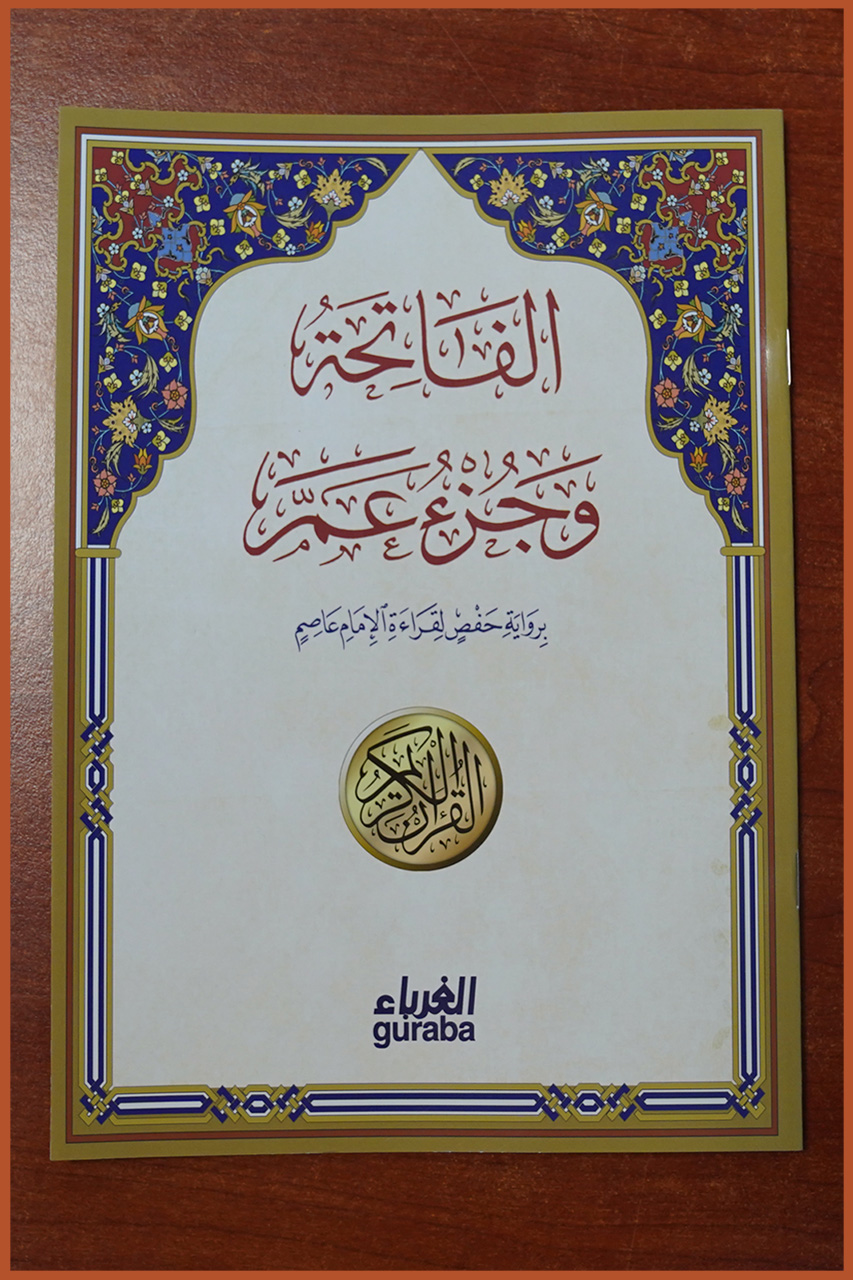 الفَاتِحَةُ
وَجُزْءُ عَمَّ
بِرِوَايَةِ حَفْصٍ لِقِرَاءَةِ ٱلْإِمَامِ عَاصِمٍ
القُرْآنُ الكَرِيمُ
الغرباء
guraba